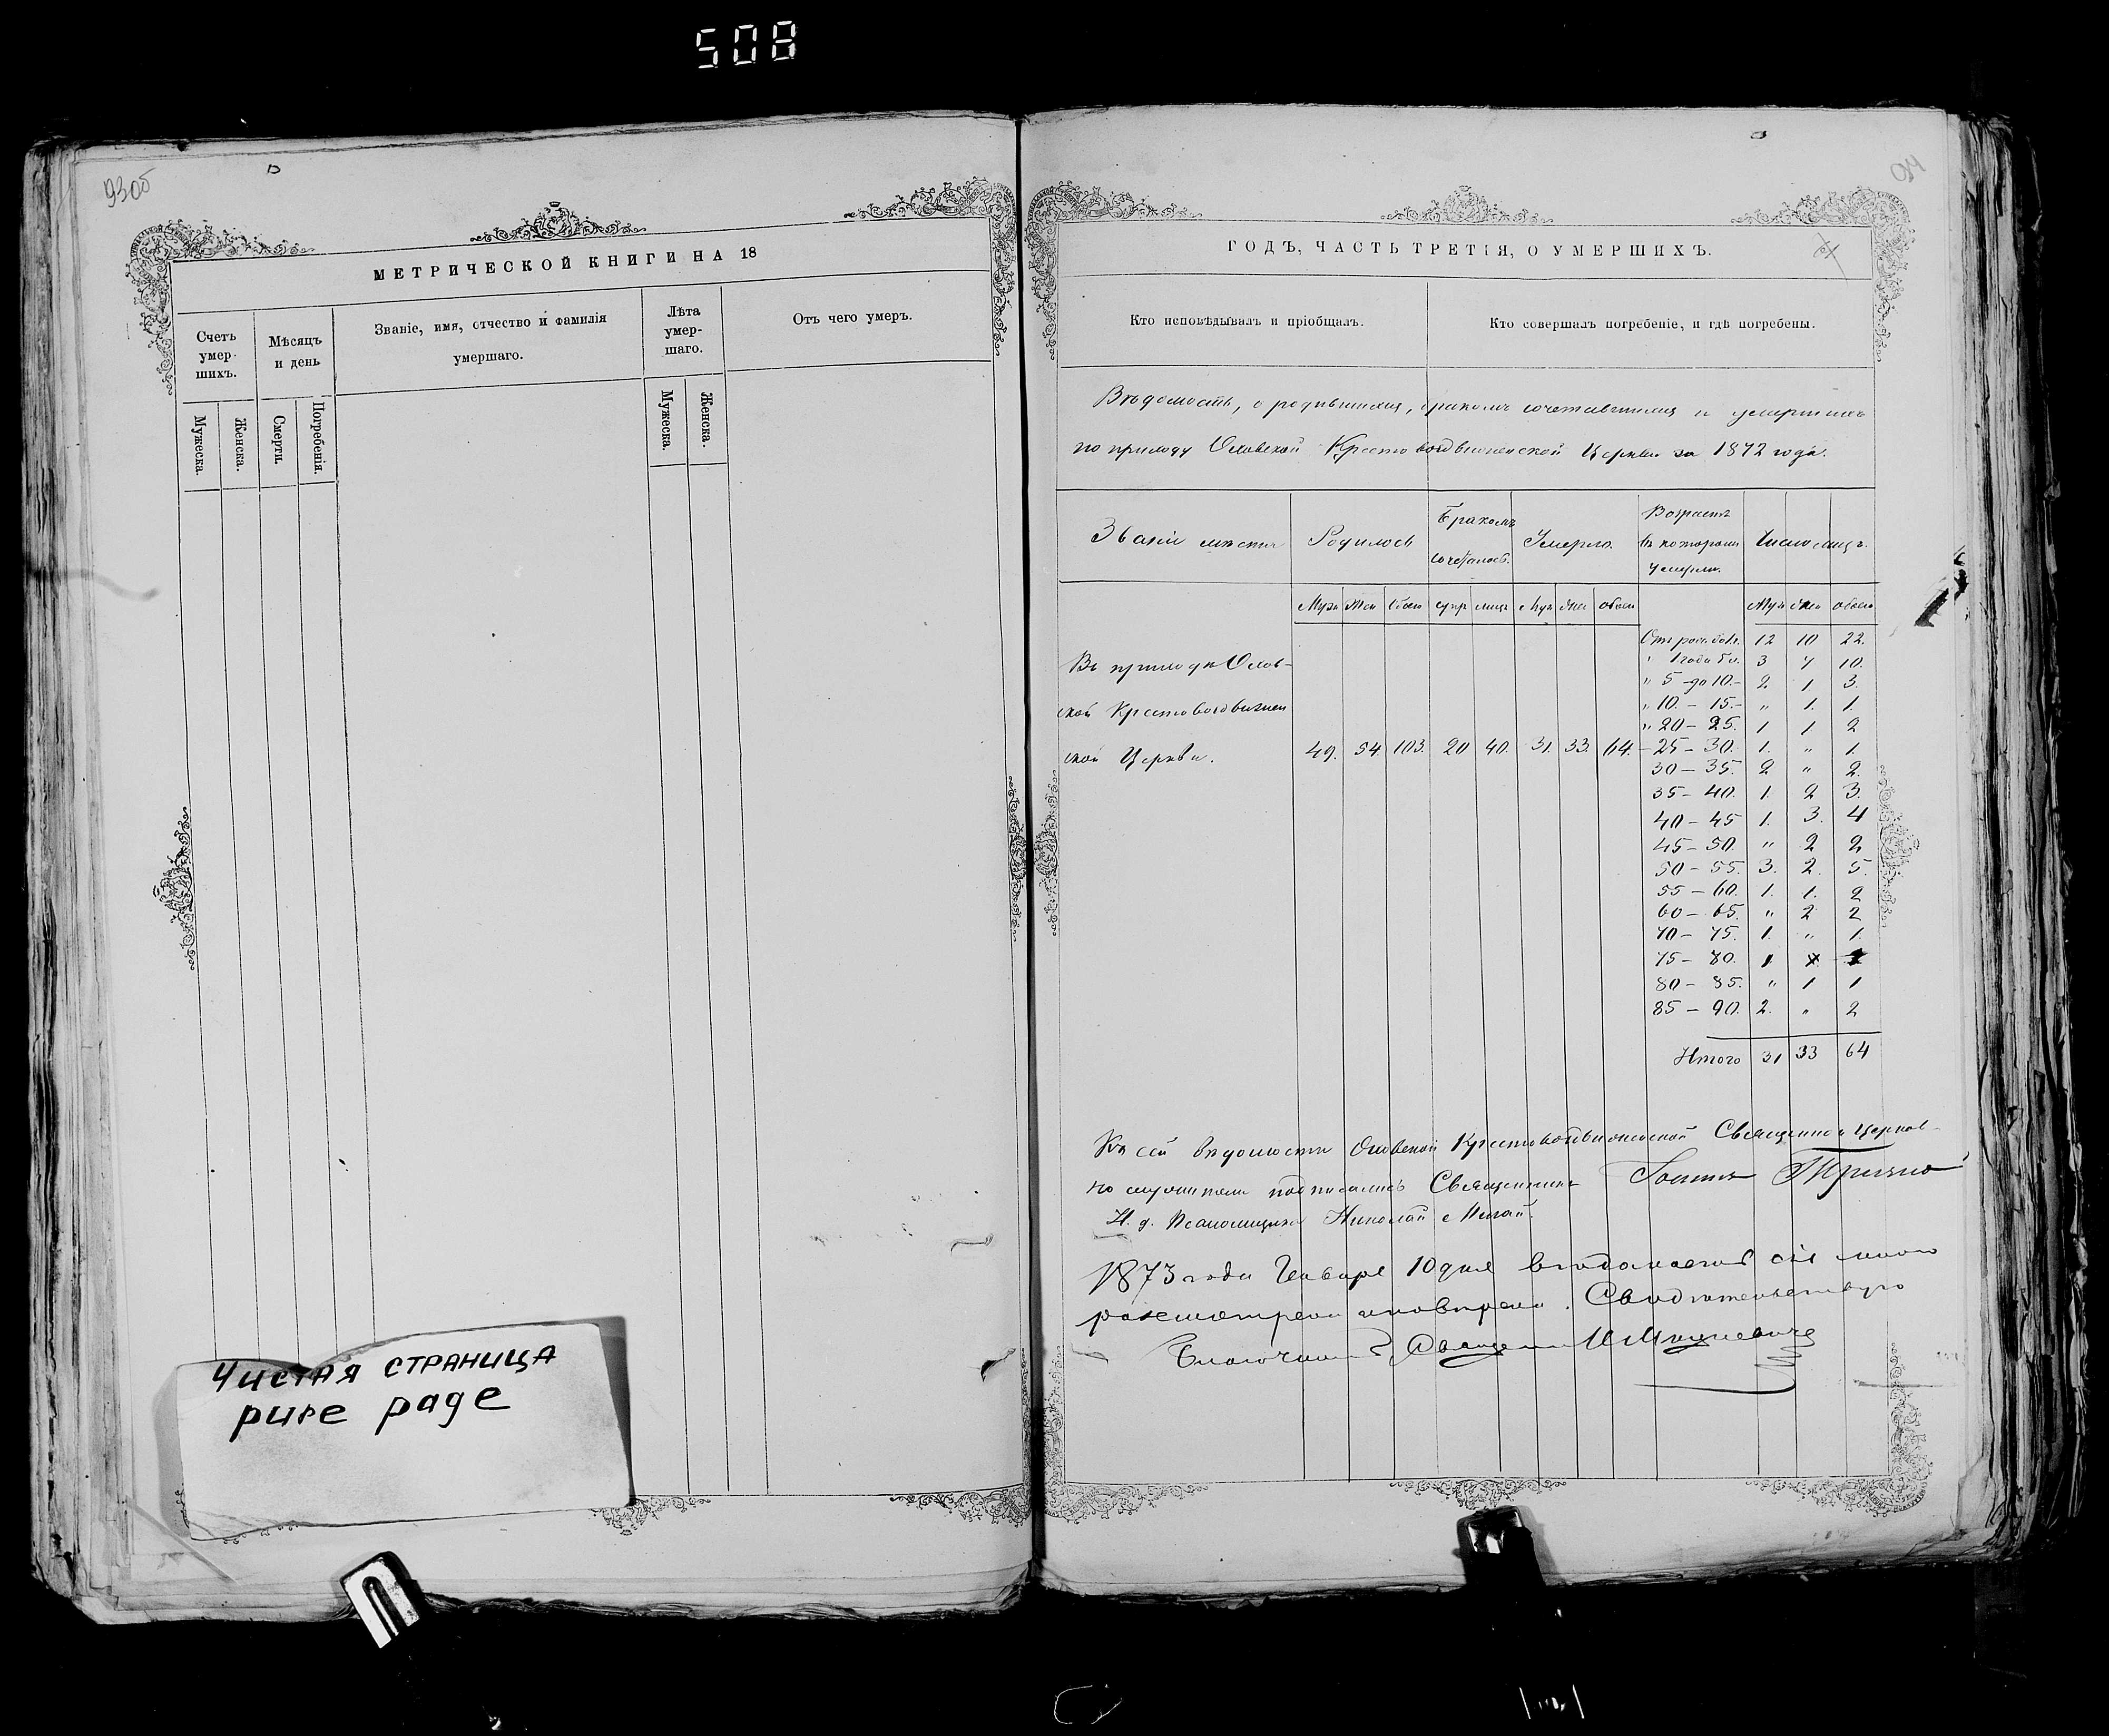 508
93об
МЕТРИЧЕСКОЙ КНИГИ НА 18
Счетъ умер-шихъ.
Мѣсяцъ и день
Званіе, имя, отчество и фамилія умершаго.
Лѣта умер-шаго.
Отъ чего умеръ.
Мужеска.
Женска.
Смерти.
Погребенія.
Мужеска.
Женска.
Чистая страница
pure page
94
ГОДЪ, ЧАСТЬ ТРЕТІЯ, О УМЕРШИХЪ.
Кто исповѣдывалъ и пріобщалъ.
Кто совершалъ погребеніе, и гдѣ погребены.
Вѣдомость, о родившихся, бракомъ сочетавшихся и умершихъ
по приходу Крестовоздвиженской Церкви за 1872 годъ.
Званіе мѣста
Родилось
Бракомъ сочеталось.
Умерло.
Возрастъ въ которомъ умерли.
Число лицъ.
Муж Жен Обоего супр лицъ Муж Жен обоего Муж Жен обоего
Въ приходѣ
ской Крестовоздвижен
ской Церкви.
49. 54. 103. 20 40. 31. 33. 64.
Отъ рожд. до 1. 12 10 22.
" 1 года до 5. 3 7 10.
" 5 до 10. 2 1 3.
" 10. – 15. " 1. 1.
" 20 – 25. 1 1 2
25 – 30. 1. " 1
30 – 35. 2 " 2.
35 – 40. 1. 2 3.
40 – 45 1. 3. 4
45 – 50. " 2 2
50 – 55. 3. 2. 5.
55 – 60. 1. 1. 2
60 – 65. " 2 2
70 – 75. 1. " 1.
75 – 80. 1 1
80 – 85. " 1 1
85 – 90. 2. " 2
Итого 31 33 64
Къ сей вѣдомости Крестовоздвиженской Священно и Церков-
но служители подписались Священникъ Іоаннъ
И. д. Псаломщика Николай
1873 года Генваря 10 дня вѣдомость сія мною
разсмотрена и повѣрена. Свидѣтельствую
Благочинный Священникъ